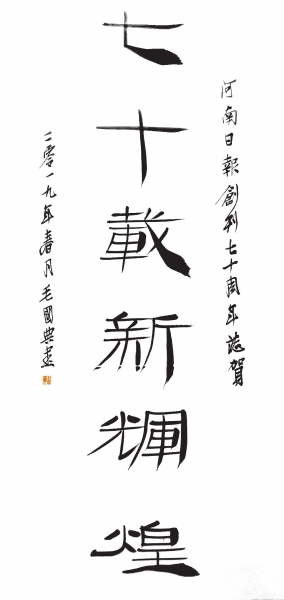 河南日報創刊七十周年誌賀
七十載新輝煌
二零一九年春月毛國典書